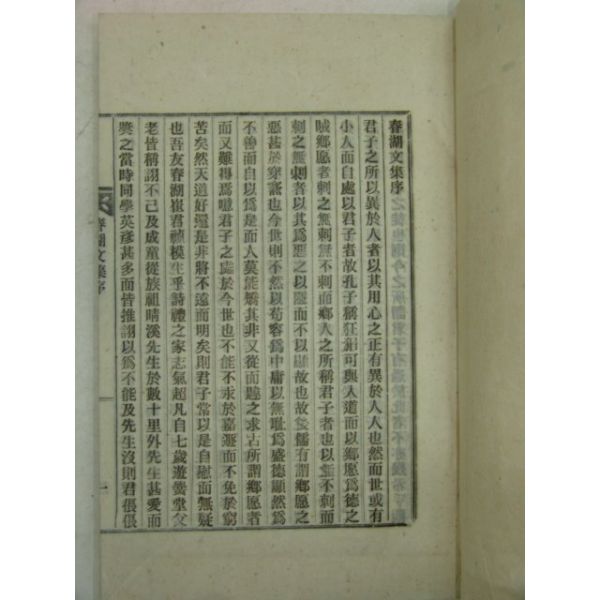 春湖文集序
君子之所以異於人者以其用心之正有異於人人也然而世或有
小人而自處以君子者故孔子稱狂狷可與入道而以鄉愿爲德之
賊鄉愿者刺之無刺而鄉人之所稱君子者也以無不刺而
刺之無刺者以其爲惡之以隱而不以顯故也故先儒有謂鄉愿之
惡甚於穿窬也今世則不然以苟容爲中庸以無恥爲盛德顯然爲
不善而自以爲是而人莫能矯其非又從而趨之求古所謂鄉愿者
而又難得焉噫君子之處於今世也不能不求於嘉遯而不免於窮
苦矣然天道好還是非將不遠而明矣則君子當以是自慰而無疑
也吾友春湖崔君禎模生乎詩禮之家志氣超凡自七歲遊黌堂父
老皆稱詡不已及成童從族祖晴溪先生於數十里外先生甚愛而
獎之當時同學英彥甚多而皆推詡以爲不能及先生沒則君倀倀
春湖文集序
一